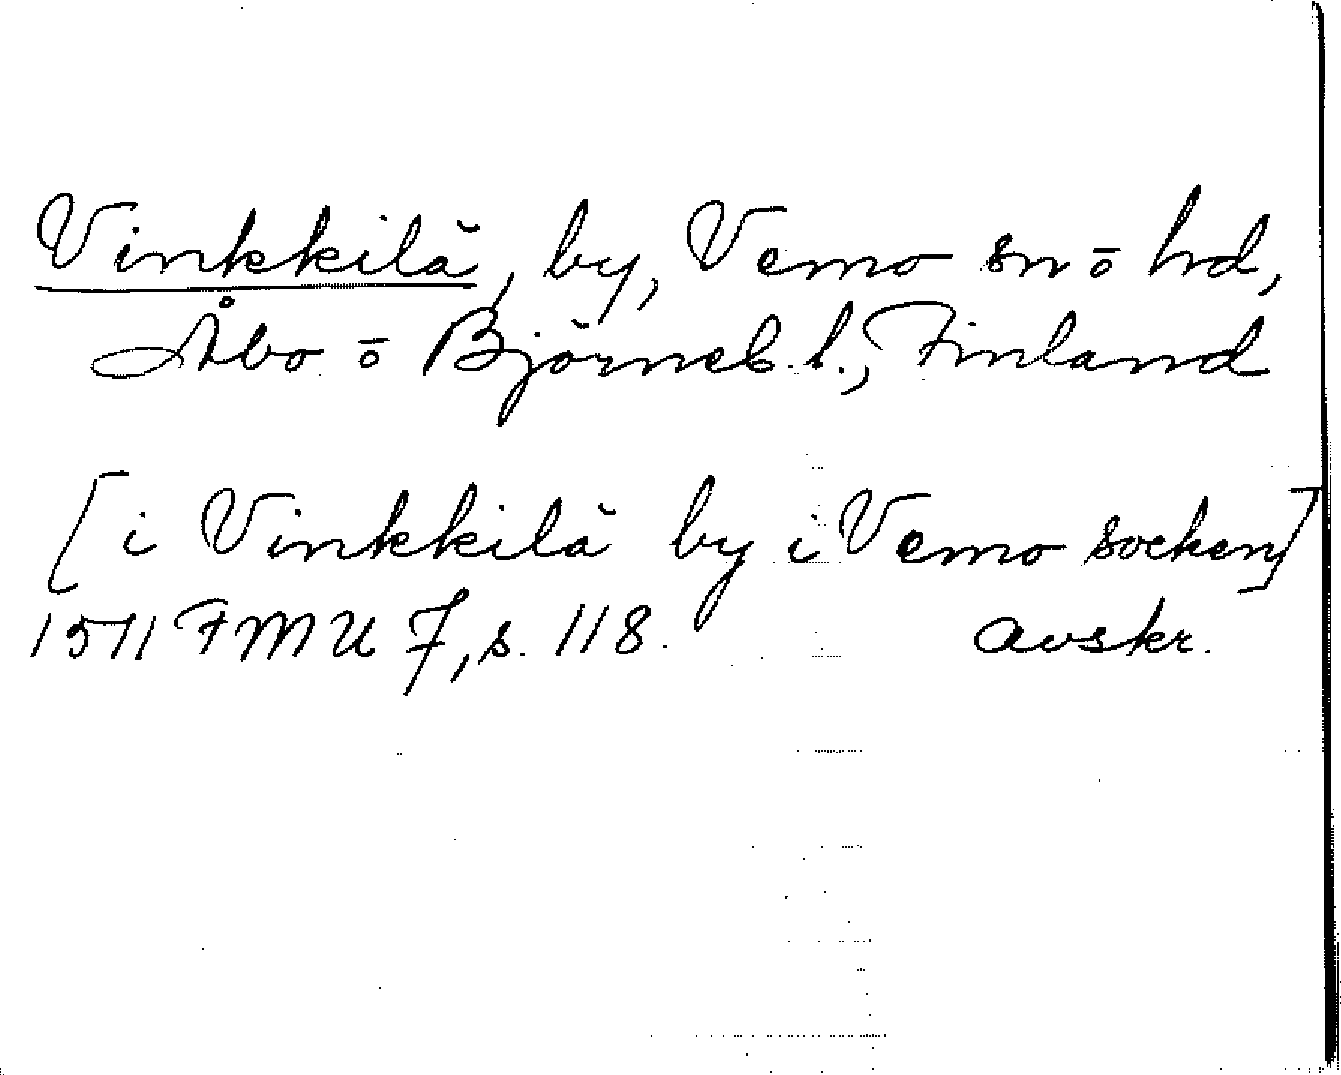 Vinkkilä, by, Vemo sn ō hd,
Åbo ō Björneb. l., Finland
[i Vinkkilä by i Vemo socken]
1511 FMU 7, s. 118. avskr.